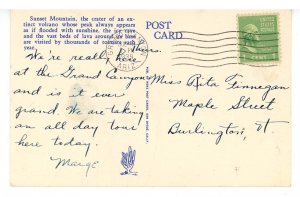 Sunset Mountain, the crater of an ex-
tinct volcano whose peak always appears
as if flooded with sunshine, the ice cave
and the vast beds of lava around or
are visited by thousands of tourists each
year.
POST
CARD
Thurs.
We're really here
at the Grand Canyon
and is it ever
grand. We are taking
an all day tour
here today.
Marge
ARIZ
UNITED STATES
1 CENT
Miss Rita Finnegan
Maple Street
Burlington, Vt.